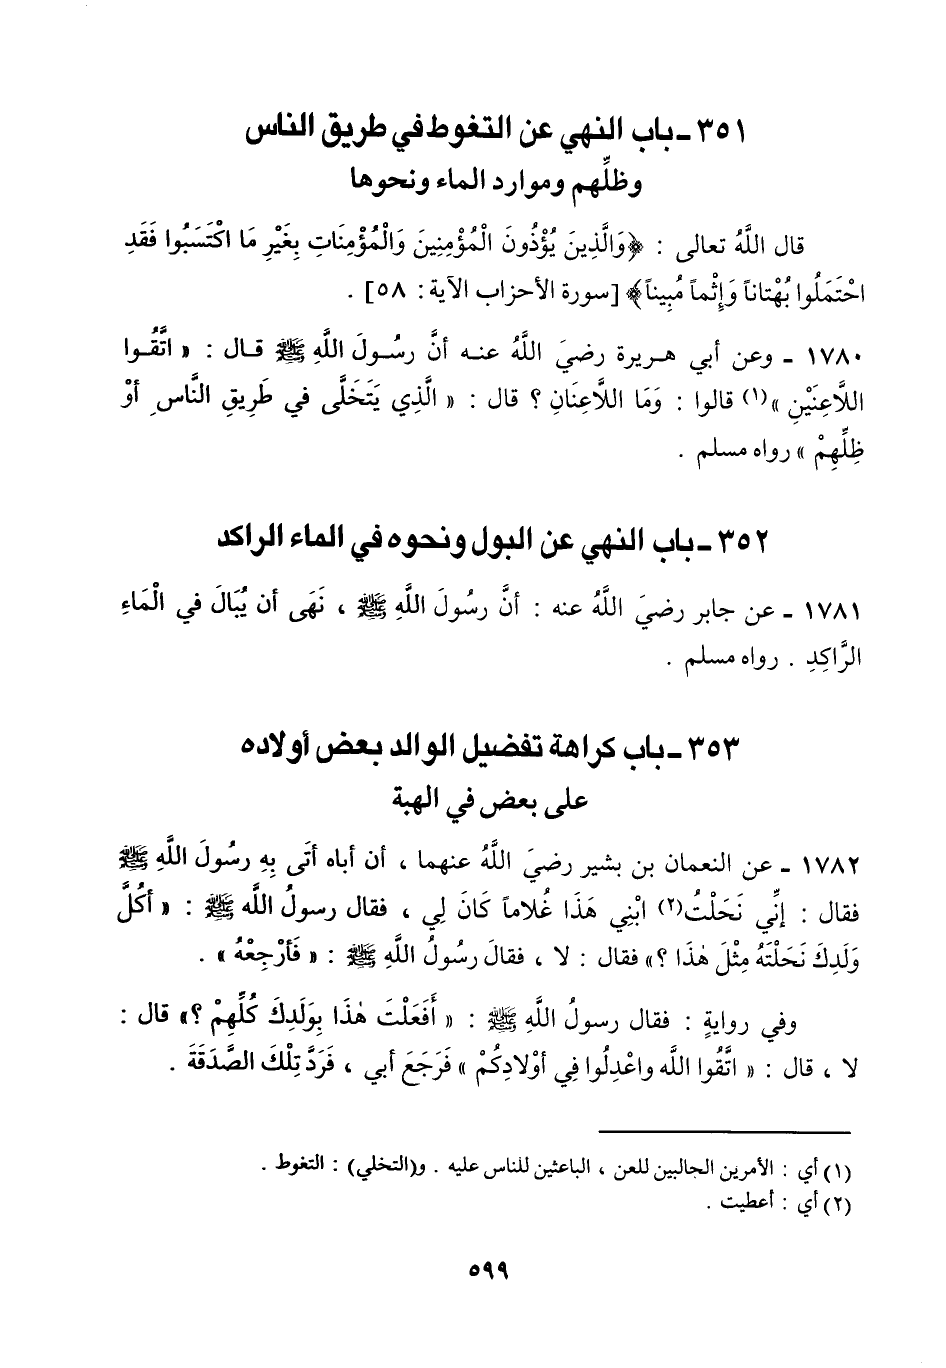 ٣٥١ ـ باب النهي عن التغوط في طريق الناس
وظلِّهم وموارد الماء ونحوها
قال اللَّهُ تعالى : ﴿وَالَّذِينَ يُؤْذُونَ الْمُؤْمِنِينَ وَالْمُؤْمِنَاتِ بِغَيْرِ مَا اكْتَسَبُوا فَقَدِ
احْتَمَلُوا بُهْتاناً وَإِثْماً مُبِيناً﴾ [سورة الأحزاب الآية : ٥٨] .
١٧٨٠ ـ وعن أبي هـريرة رضيَ اللَّهُ عنـه أنَّ رسُـولَ اللَّهِ ﷺ قـال : « اتَّقُـوا
اللاَّعِنَيْنِ »(١) قالوا : وَمَا اللاَّعِنَانِ ؟ قال : « الَّذِي يَتَخَلَّى في طَرِيقِ النَّاسِ أوْ
ظِلِّهِمْ » رواه مسلم .
٣٥٢ ـ باب النهي عن البول ونحوه في الماء الراكد
١٧٨١ ـ عن جابر رضيَ اللَّهُ عنه : أنَّ رسُولَ اللَّهِ ﷺ ، نَهَى أن يُبَالَ في الْمَاءِ
الرَّاكِدِ . رواه مسلم .
٣٥٣ ـ باب كراهة تفضيل الوالد بعض أولاده
على بعض في الهبة
١٧٨٢ ـ عن النعمان بن بشير رضيَ اللَّهُ عنهما ، أن أباه أتَى بِهِ رسُولَ اللَّهِ ﷺ
فقال : إنِّي نَحَلْتُ(٢) ابْنِي هَذَا غُلاماً كَانَ لِي ، فقال رسولُ اللَّه ﷺ : « أكُلَّ
وَلَدِكَ نَحَلْتَهُ مِثْلَ هٰذَا ؟» فقال : لا ، فقالَ رسُولُ اللَّهِ ﷺ : « فَأرْجِعْهُ » .
وفي روايةٍ : فقال رسولُ اللَّهِ ﷺ : « أَفَعَلْتَ هٰذَا بِوَلَدِكَ كُلِّهِمْ ؟» قال :
لا ، قال : « اتَّقُوا اللَّه واعْدِلُوا فِي أوْلادِكُمْ » فَرَجَعَ أبي ، فَرَدَّ تِلْكَ الصَّدَقَةَ .
(١) أي : الأمرين الجالبين للعن ، الباعثين للناس عليه . و(التخلي) : التغوط .
(٢) أي : أعطيت .
٥٩٩